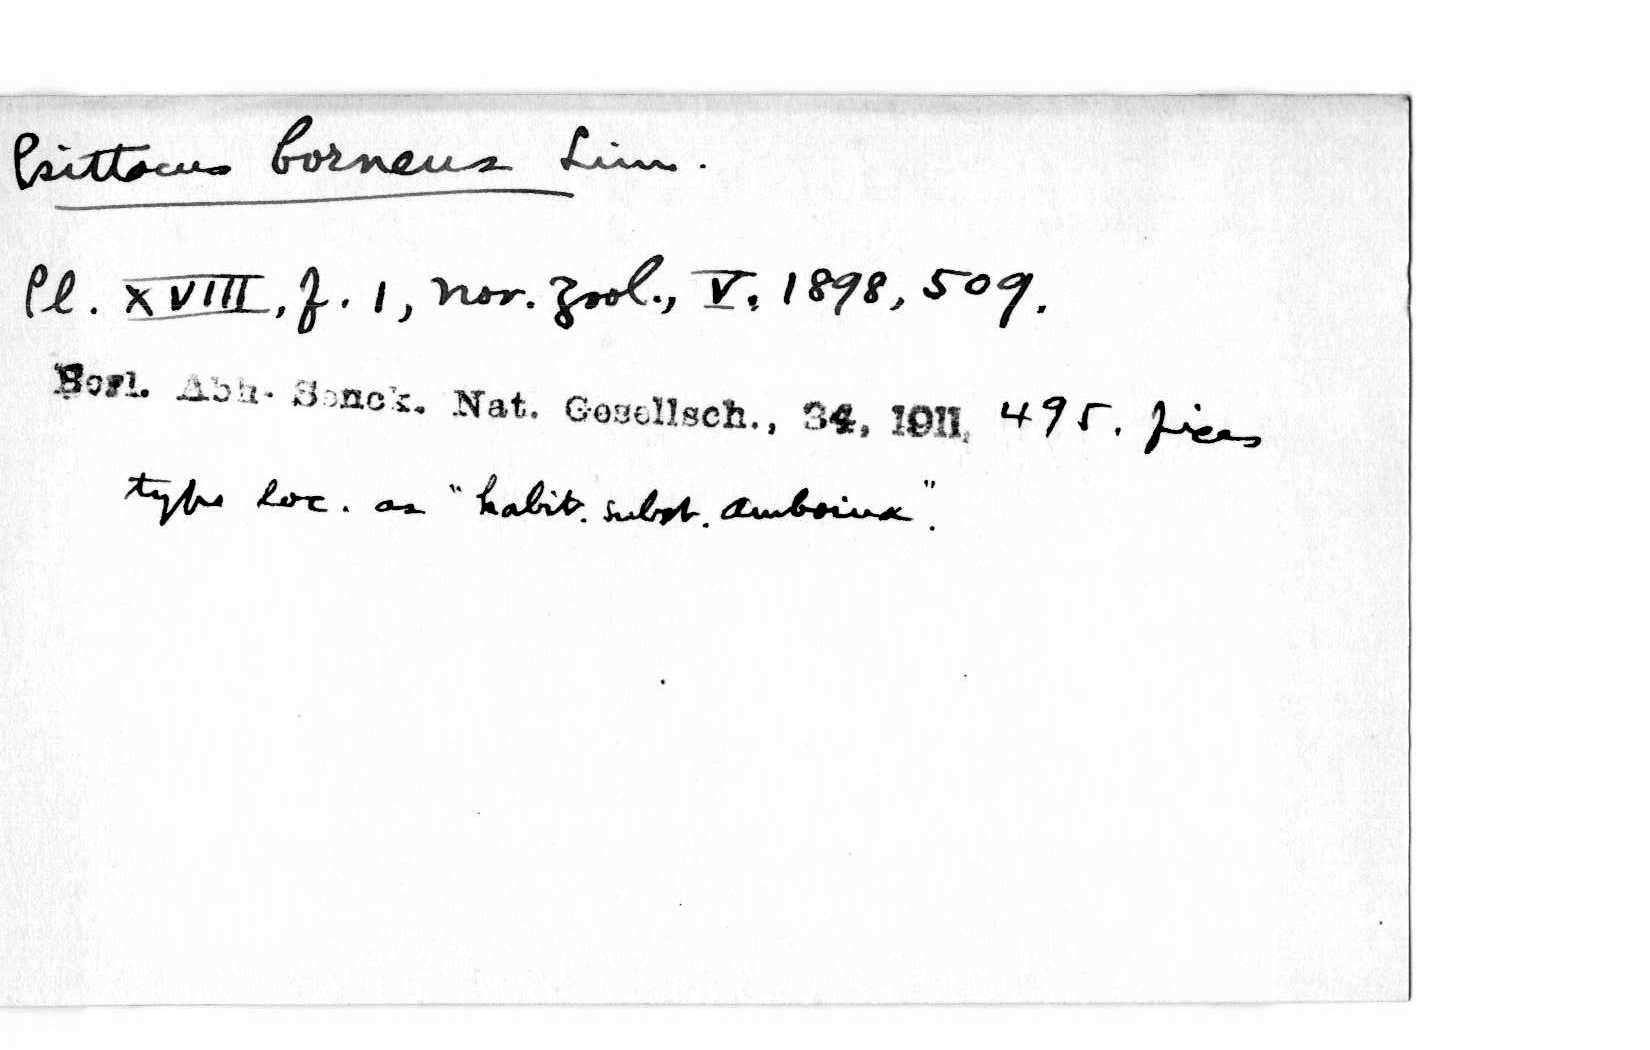 Psittacus borneus Linn.
Pl. XVIII, f. 1, Nov. Zool., V, 1898, 509.
Berl. Abh. Senck. Nat. Gesellsch., 34, 1911, 495. fixes
type loc. as "habit. subst. Amboina".